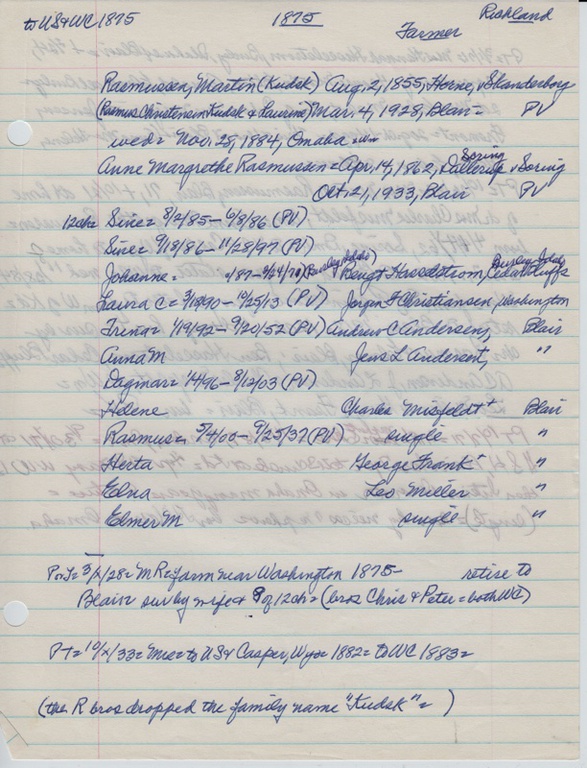 to US & WC 1875 1875 Richland
Farmer
Rasmussen, Martin (Kudsk) Aug. 2, 1855, Horne, Skanderborg
(Rasmus Christensen Kudsk & Laurine) Mar. 4, 1928, Blair = PV
wed = Nov. 25, 1884, Omaha
Anne Margrethe Rasmussen = Apr. 14, 1862, Soring
Oct. 21, 1933, Blair PV
12ch = Sine = 8/2/85 - 6/8/86 (PV)
Sine = 9/18/86 - 11/28/97 (PV)
Johanne = /87 - 9/24/71 (Burley, Idaho) Bengt Hasselstrom, Burley, Idaho Cedar Bluffs
Laura C = 3/18/90 - 10/25/13 (PV) Jorgen F Christiansen, Washington
Trena = 1/19/92 - 9/20/52 (PV) Andrew C Andersen, Blair
Anna M Jens L Andersen, "
Dagmar = 1/4/96 - 8/12/03 (PV)
Helene Charles Misfeldt + Blair
Rasmus = 5/4/00 - 9/25/37 (PV) single "
Herta George Frank + "
Edna Leo Miller "
Elmer M single "
P or T = 3/x/28 = MR = farm near Washington 1875 - retire to
Blair = surv by wife & 8 of 12 ch = (bros Chris & Peter = both WC)
PT = 10/x/33 = Mrs = to US & Casper, Wyo = 1882 = to WC 1883 =
(the R bros dropped the family name "Kudsk" = )